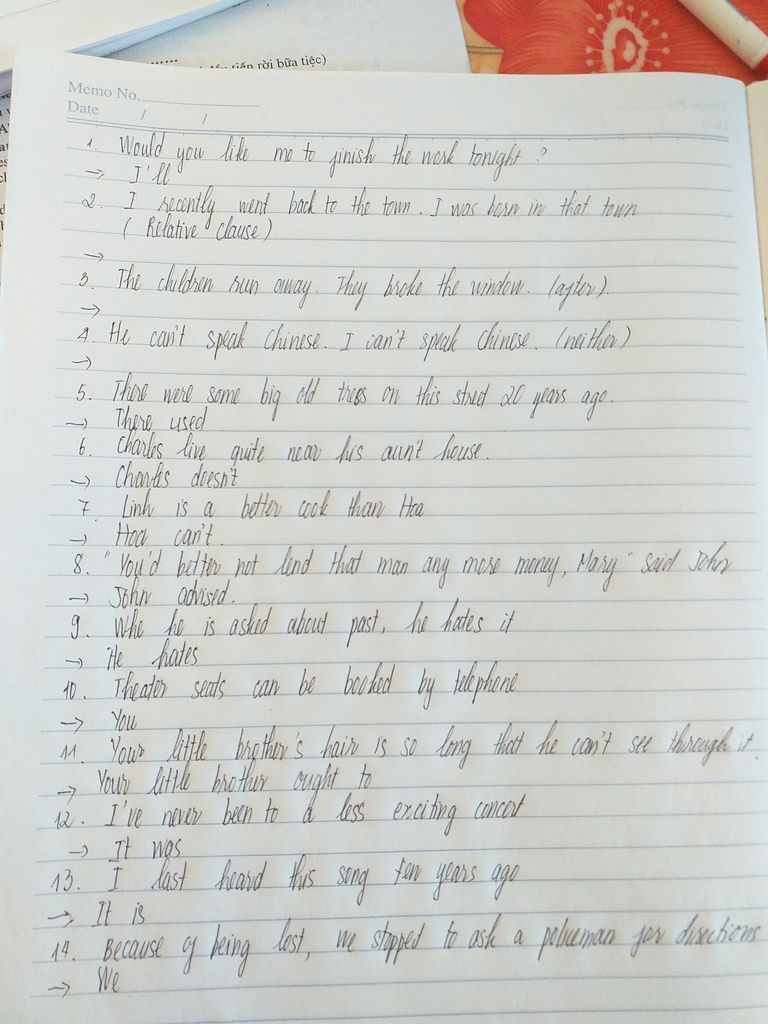 ......
đầu tiên rời bữa tiệc)
Memo No.
Date / /
1. Would you like me to finish the work tonight ?
→ I'll
2. I recently went back to the town. I was born in that town
( Relative clause )
→
3. The children run away. They broke the window. (after).
→
4. He can't speak Chinese. I can't speak Chinese. (neither)
→
5. There were some big old trees on this street 20 years ago.
→ There used
6. Charles live quite near his aun't house.
→ Charles doesn't
7. Linh is a better cook than Hoa
→ Hoa can't.
8. "You'd better not lend that man any more money, Mary" said John
→ John advised.
9. Whe he is asked about past, he hates it
→ He hates
10. Theater seats can be booked by telephone
→ You
11. Your little brother's hair is so long that he can't see through it.
→ Your little brother ought to
12. I've never been to a less exciting concert
→ It was
13. I last heard this song ten years ago
→ It is
14. Because of being lost, we stopped to ask a policeman for directions
→ We